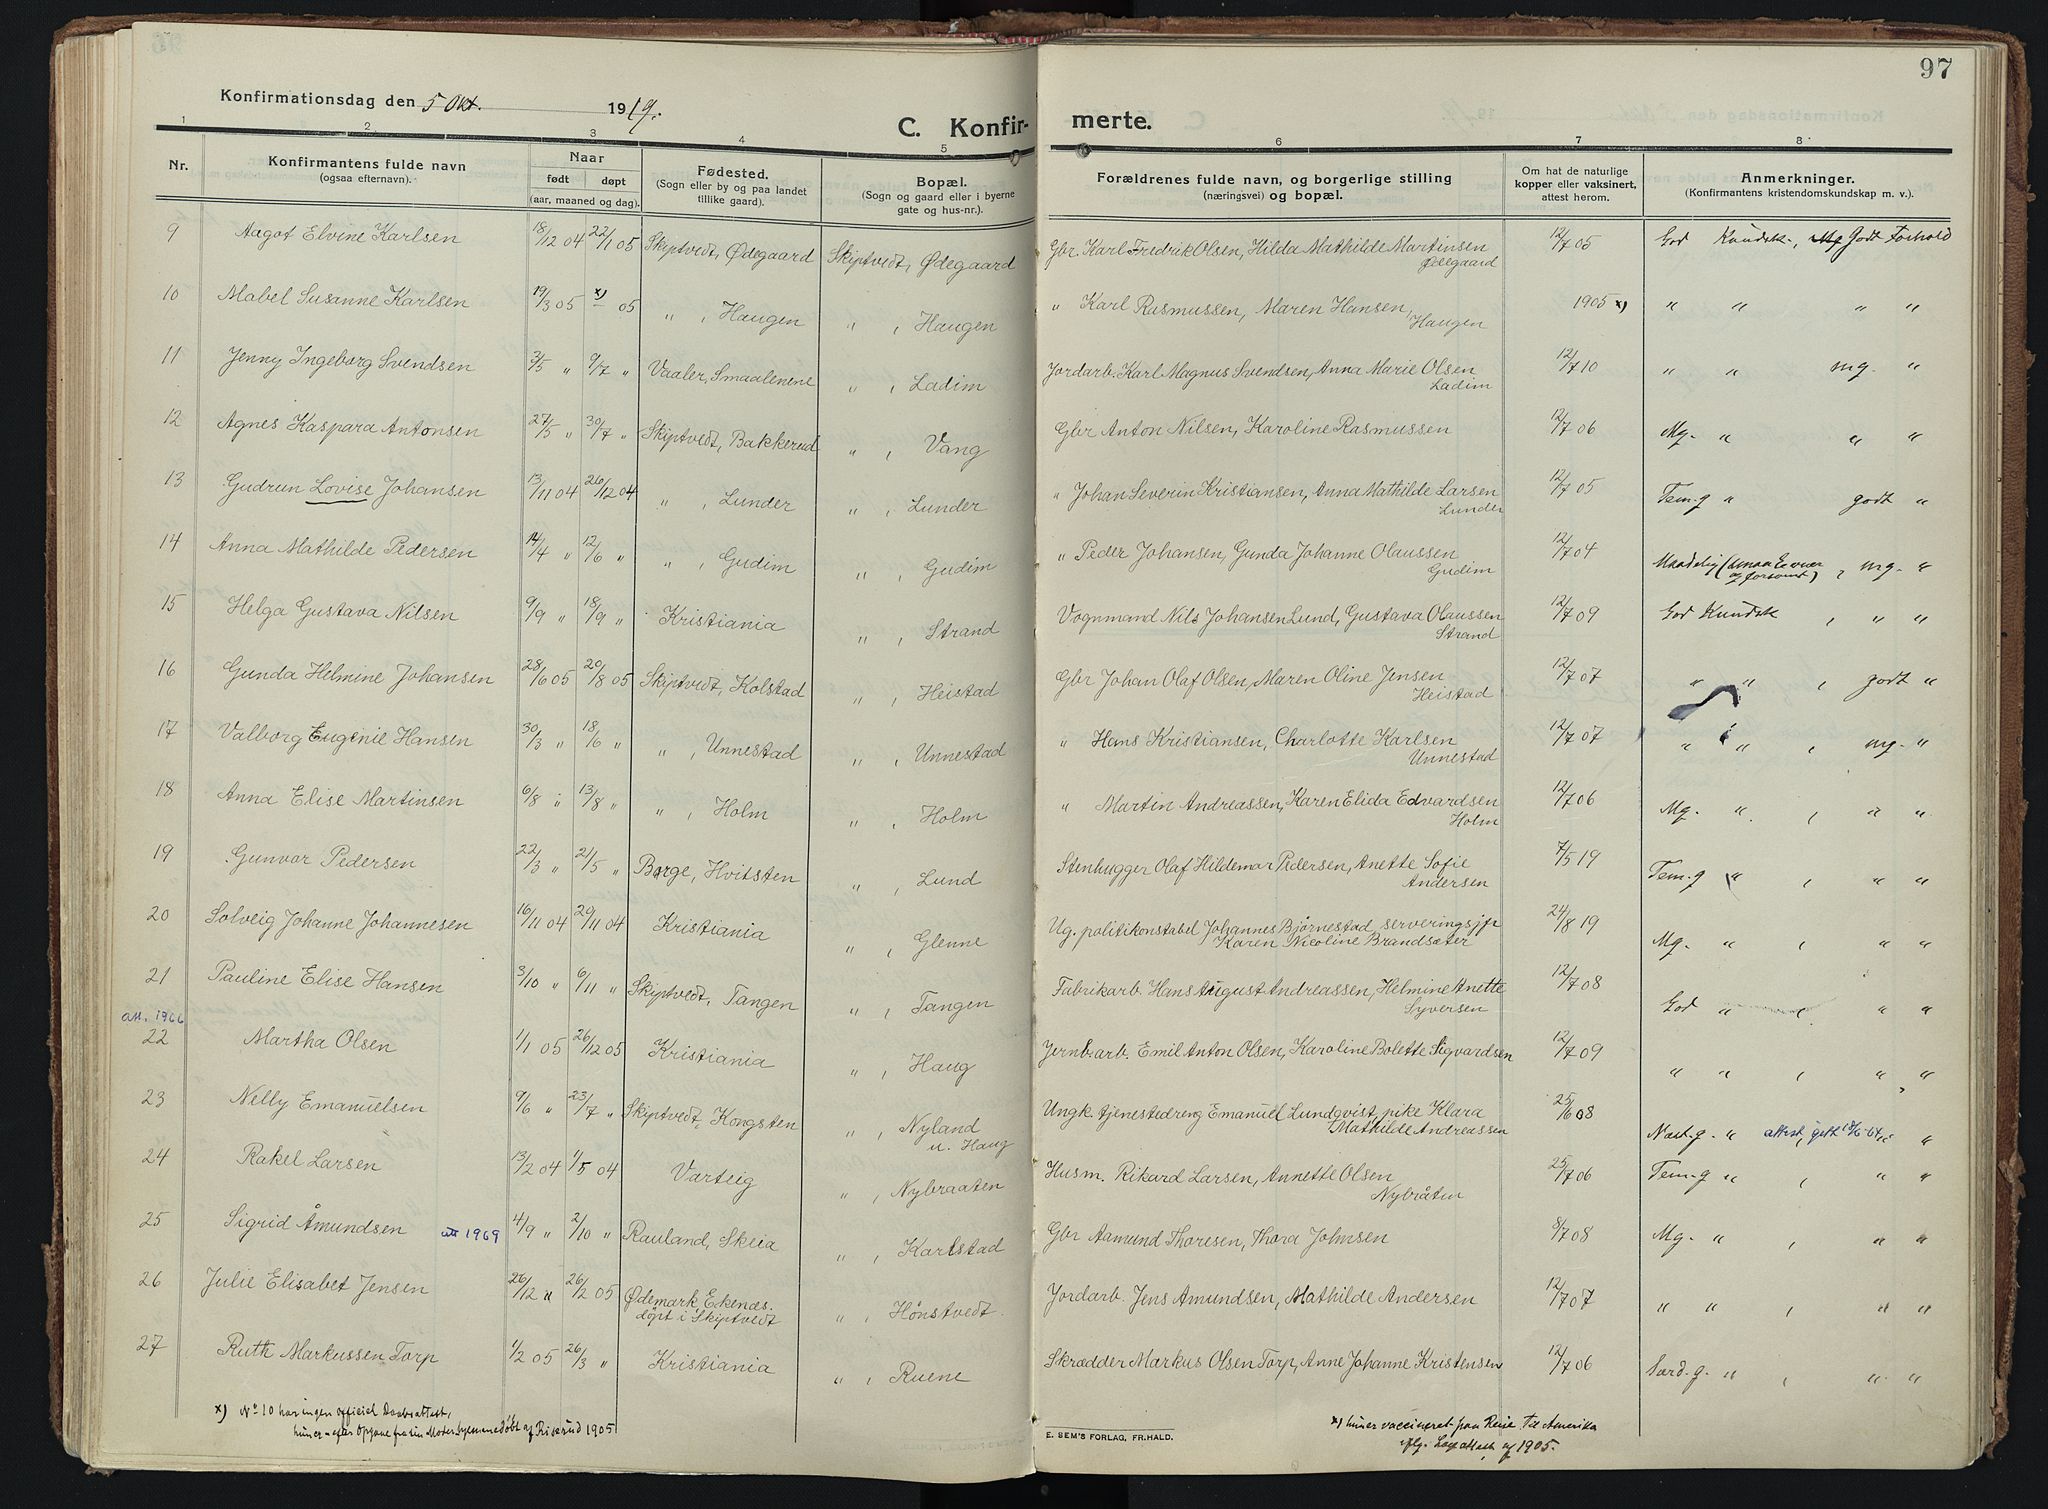 97
Konfirmationsdag den 5 Okt. 1919.
C. Konfir- merte.
1 2 3 4 5 6 7 8
Nr. Konfirmantens fulde navn (ogsaa efternavn). Naar født døpt (aar, maaned og dag). Fødested. (Sogn eller by og paa landet tillike gaard). Bopæl. (Sogn og gaard eller i byerne gate og hus-nr.). Forældrenes fulde navn, og borgerlige stilling (næringsvei) og bopæl. Om hat de naturlige kopper eller vaksinert, attest herom. Anmerkninger. (Konfirmantens kristendomskundskap m. v.).
9 Aagot Elvine Karlsen 18/12 04 22/1 05 Skiptvedt, Ødegaard Skiptvedt, Ødegaard Gbr. Karl Fredrik Olsen, Hilda Mathilde Martinsen 12/7 05 God Kundsk., godt Forhold
Ødegaard
10 Mabel Susanne Karlsen 19/3 05 x) 05 " , Haugen " , Haugen " Karl Rasmussen, Maren Hansen, 1905 x) " " " "
Haugen
11 Jenny Ingeborg Svendsen 3/5 " 9/7 " Vaaler, Smaalenene " , Ladim Jordarb. Karl Magnus Svendsen, Anna Marie Olsen 12/7 10 " " mg. "
Ladim
12 Agnes Kaspara Antonsen 27/5 " 30/7 " Skiptvedt, Bakkerud " , Vang Gbr Anton Nilsen, Karoline Rasmussen 12/7 06 Mg. " " "
13 Gudrun Lovise Johansen 13/11 04 26/12 04 " , Lunder " , Lunder " Johan Severin Kristiansen, Anna Mathilde Larsen 12/7 05 Tem. g " godt "
Lunder
14 Anna Mathilde Pedersen 14/4 " 12/6 " " , Gudim " , Gudim " Peder Johansen, Gunda Johanne Olaussen 12/7 04 Maadelig (smaa Evner og forsømt), mg. "
Gudim
15 Helga Gustava Nilsen 9/9 " 18/9 " Kristiania " , Strand Vognmand Nils Johansen Lund, Gustava Olaussen 12/7 09 God Kundsk , " "
Strand
16 Gunda Helmine Johansen 28/6 05 20/8 05 Skiptvedt, Kolstad " , Heistad Gbr Johan Olaf Olsen, Maren Oline Jensen 12/7 07 " " , godt "
Heistad
17 Valborg Eugenie Hansen 30/3 " 18/6 " " , Unnestad " , Unnestad " Hans Kristiansen, Charlotte Karlsen 12/7 07 " " , mg. "
Unnestad
18 Anna Elise Martinsen 6/8 " 13/8 " " , Holm " , Holm " Martin Andreassen, Karen Elida Edvardsen 12/7 06 Mg. " , " "
Holm
19 Gunvor Pedersen 22/3 " 2/5 " Borge, Hvitsten " , Lund Stenhugger Olaf Hildemar Pedersen, Anette Sofie 7/5 19 Tem. g " , " "
Andersen
20 Solveig Johanne Johannesen 16/11 04 20/11 04 Kristiania " , Glenne Ug. politikonstabel Johannes Bjørnestad, serveringsjfr 24/8 19 Mg. " , " "
Karen Nicoline Brandsæter
21 Pauline Elise Hansen 3/10 " 6/11 " Skiptvedt, Tangen " , Tangen Fabrikarb. Hans August Andreassen, Helmine Anette 12/7 08 God " , " "
Syversen
att. 1966
22 Martha Olsen 1/1 05 26/12 05 Kristiania " , Haug Jernb.arb. Emil Anton Olsen, Karoline Bolette Sigvardsen 12/7 09 " " , " "
23 Nelly Emanuelsen 9/6 " 23/7 " Skiptvedt, Kongsten " , Nyland Ungk. tjenestedreng Emanuel Lundqvist, pike Klara 25/6 08 Næst. g. " attest, 18/6-64 "
u. Haug Mathilde Andreassen
24 Rakel Larsen 13/2 04 1/5 04 Varteig " , Nybraaten Husm. Rikard Larsen, Annette Olsen 25/7 06 Tem. g " , " "
Nybråten
25 Sigrid Åmundsen att 1969 4/9 " 2/10 " Rauland, Skeia " , Karlstad Gbr Aamund Thoresen, Thora Johnsen 8/7 08 Mg. " , " "
26 Julie Elisabet Jensen 26/12 " 26/2 05 Ødemark Eckenæs. " , Hønstvedt. Jordarb. Jens Amundsen, Mathilde Andersen 12/7 07 " " , " "
døpt i Skiptvedt
27 Ruth Markussen Torp 1/2 05 26/3 " Kristiania " , Ruene Skrædder Markus Olsen Torp, Anne Johanne Kristensen 12/7 06 Særd. g. " , " "
x) No 10 har ingen officiel Daabsattest,
hun er efter Opgave fra sin Moder hjemmedøbt af Risrud 1905
E. SEM'S FORLAG, FR.HALD.
x) hun er vaccineret paa Reise til Amerika
iflg. af 1905.